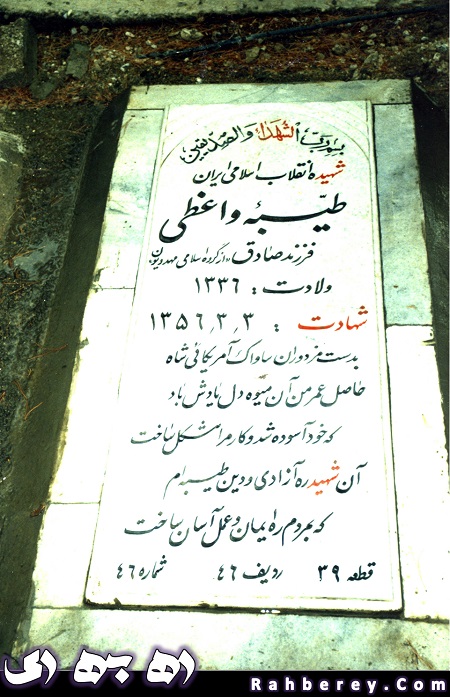 بسم رب الشهداء والصدیقین
شهیدهٔ انقلاب اسلامی ایران
طیّبهٔ واعظی
فرزند صادق «از گروه اسلامی مهدویون»
ولادت : ۱۳۳۶
شهادت : ۱۳۵۶,۳,۳
بدست مزدوران ساواک آمریکائی شاه
حاصل عمر من آن میوه دل یادش باد
که خود آسوده شد و کار مرا مشکل ساخت
آن شهید ره آزادی و دین طیبه ام
که بمردم ره ایمان و عمل آسان ساخت
قطعه ۳۹ ردیف ۴۶ شماره ۴۶
Rahberey.Com